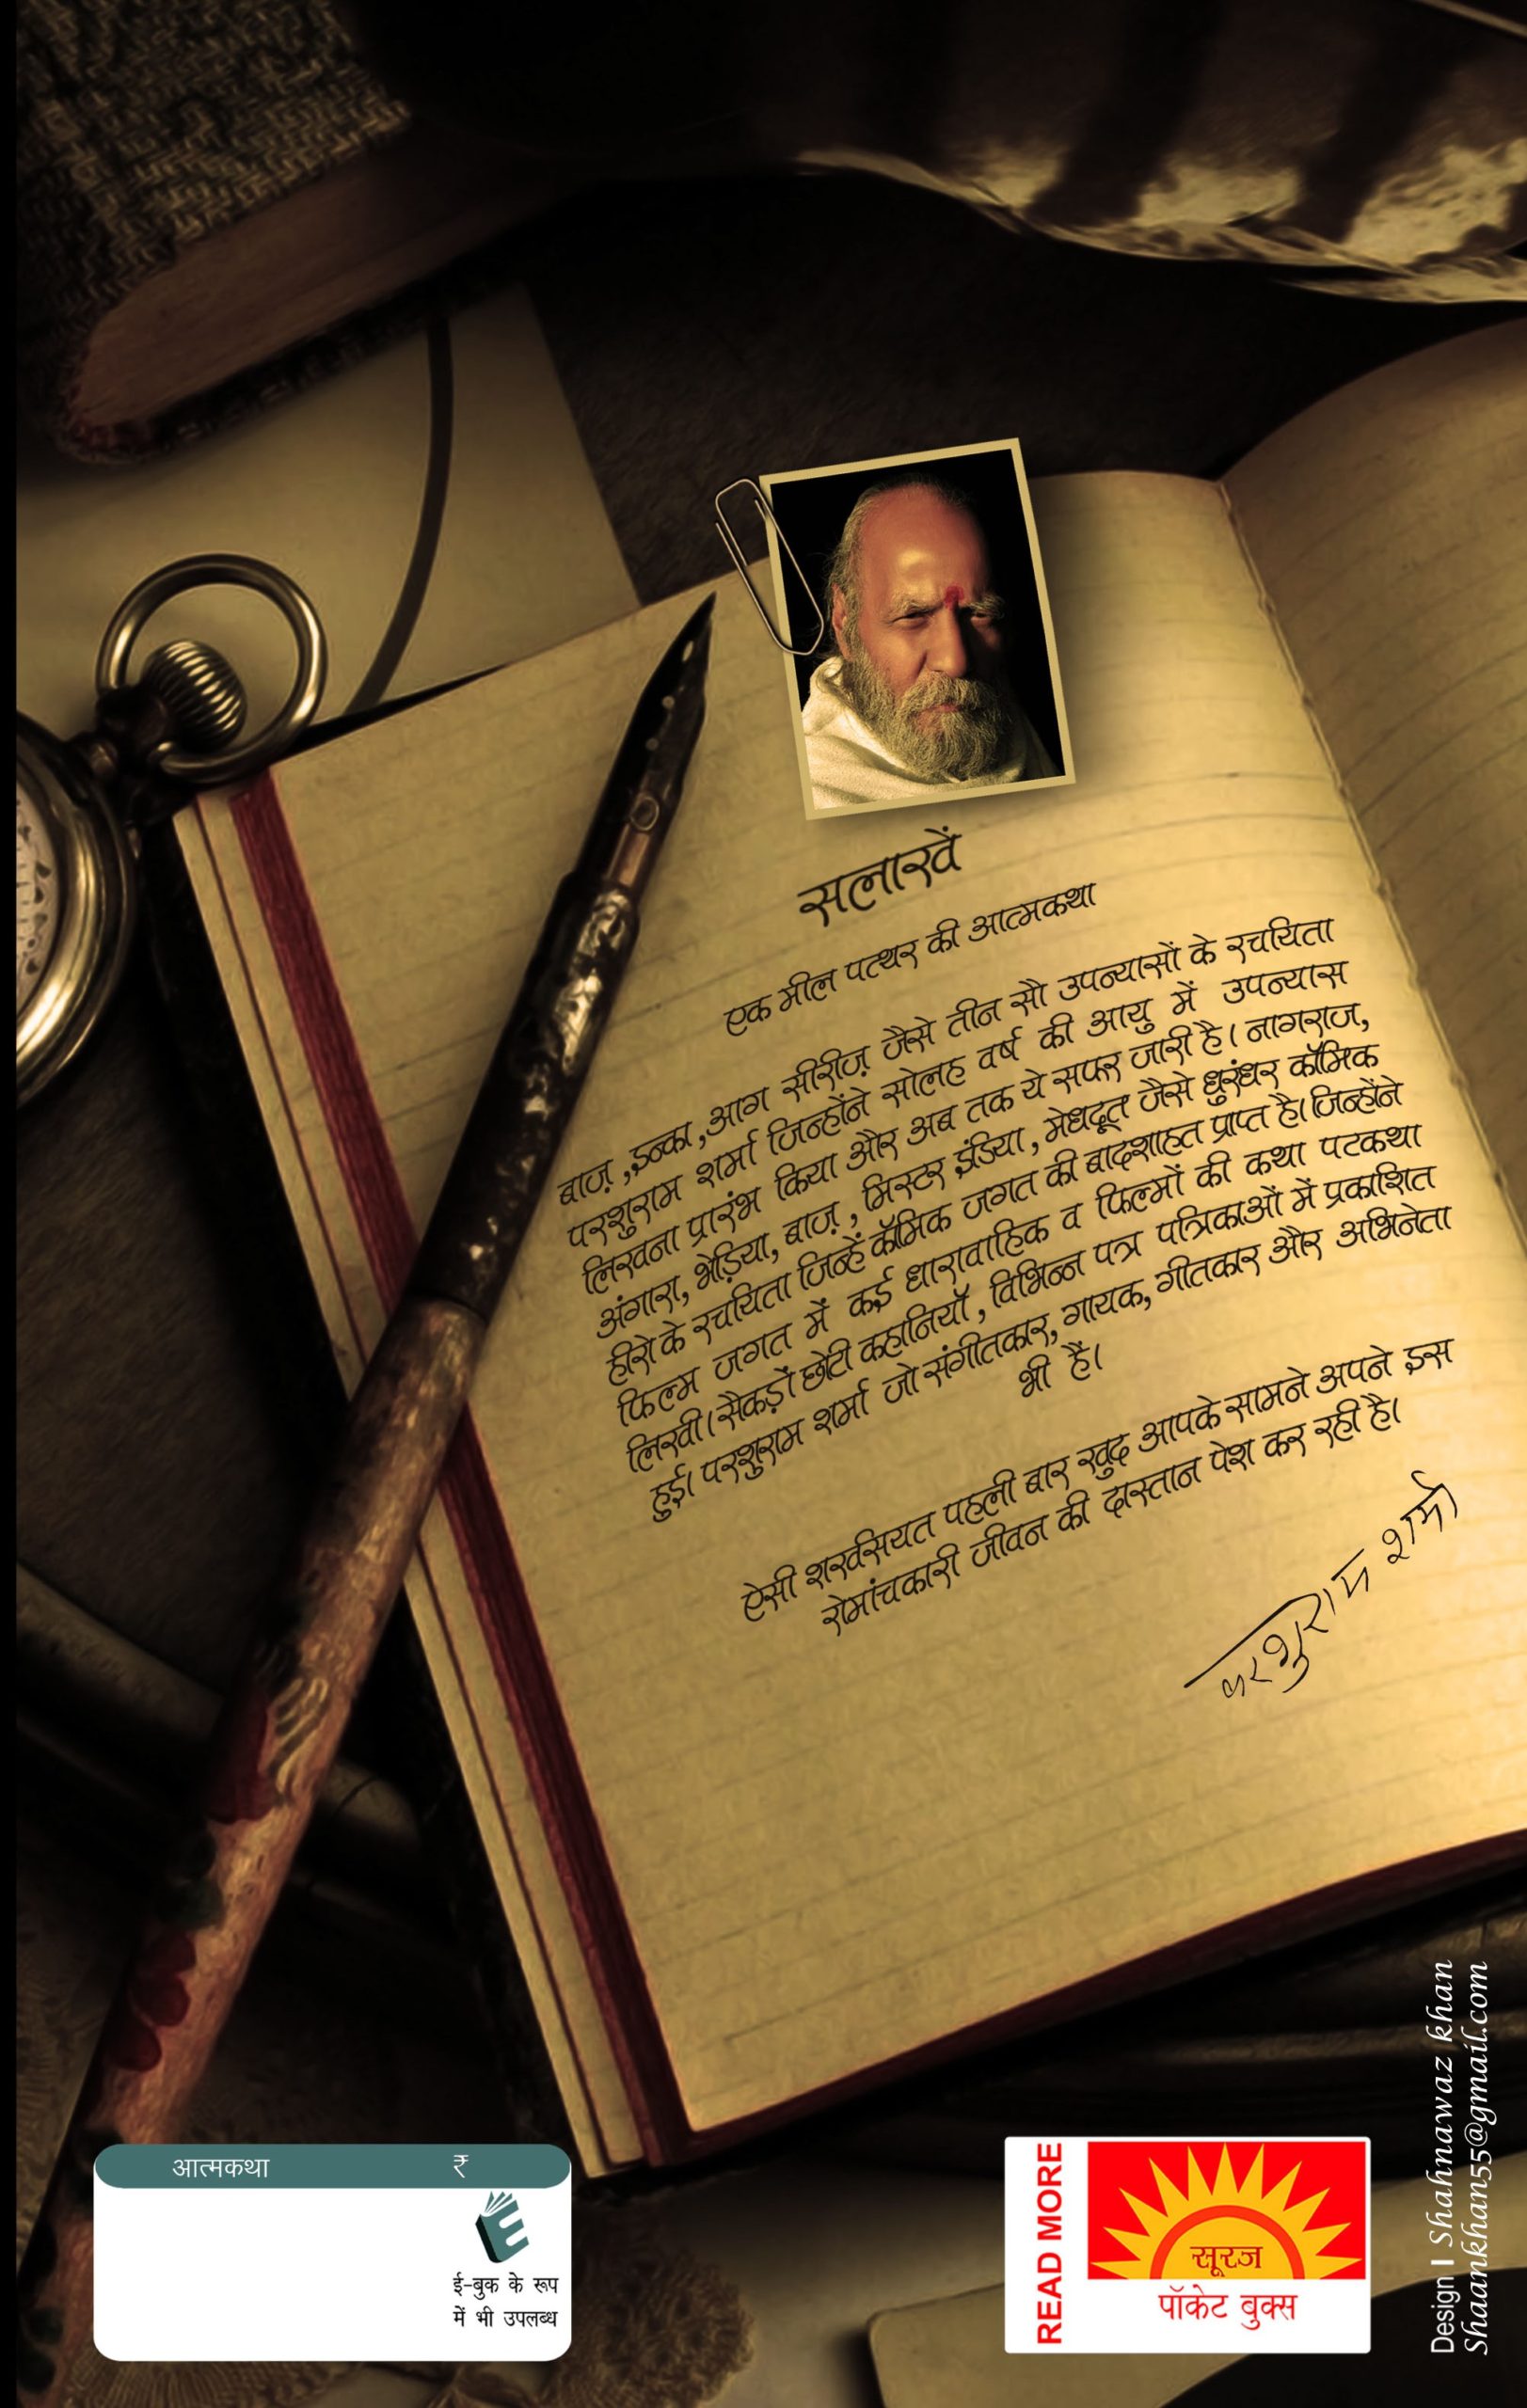 सलाखें
एक मील पत्थर की आत्मकथा
बाज़ ,इन्का ,आग सीरीज़ जैसे तीन सौ उपन्यासों के रचयिता
परशुराम शर्मा जिन्होंने सोलह वर्ष की आयु में उपन्यास
लिखना प्रारंभ किया और अब तक ये सफर जारी है। नागराज,
अंगारा, भेड़िया, बाज़ , मिस्टर इंडिया , मेघदूत जैसे धुरंधर कॉमिक
हीरो के रचयिता जिन्हें कॉमिक जगत की बादशाहत प्राप्त है। जिन्होंने
फिल्म जगत में कई धारावाहिक व फिल्मों की कथा पटकथा
लिखी। सैकड़ों छोटी कहानियाँ , विभिन्न पत्र पत्रिकाओं में प्रकाशित
हुई। परशुराम शर्मा जो संगीतकार, गायक, गीतकार और अभिनेता
भी हैं।
ऐसी शख़्सियत पहली बार खुद आपके सामने अपने इस
रोमांचकारी जीवन की दास्तान पेश कर रही है।
परशुराम शर्मा
आत्मकथा ₹
E
ई-बुक के रूप
में भी उपलब्ध
READ MORE
सूरज
पॉकेट बुक्स
Design I Shahnawaz khan
Shaankhan55@gmail.com